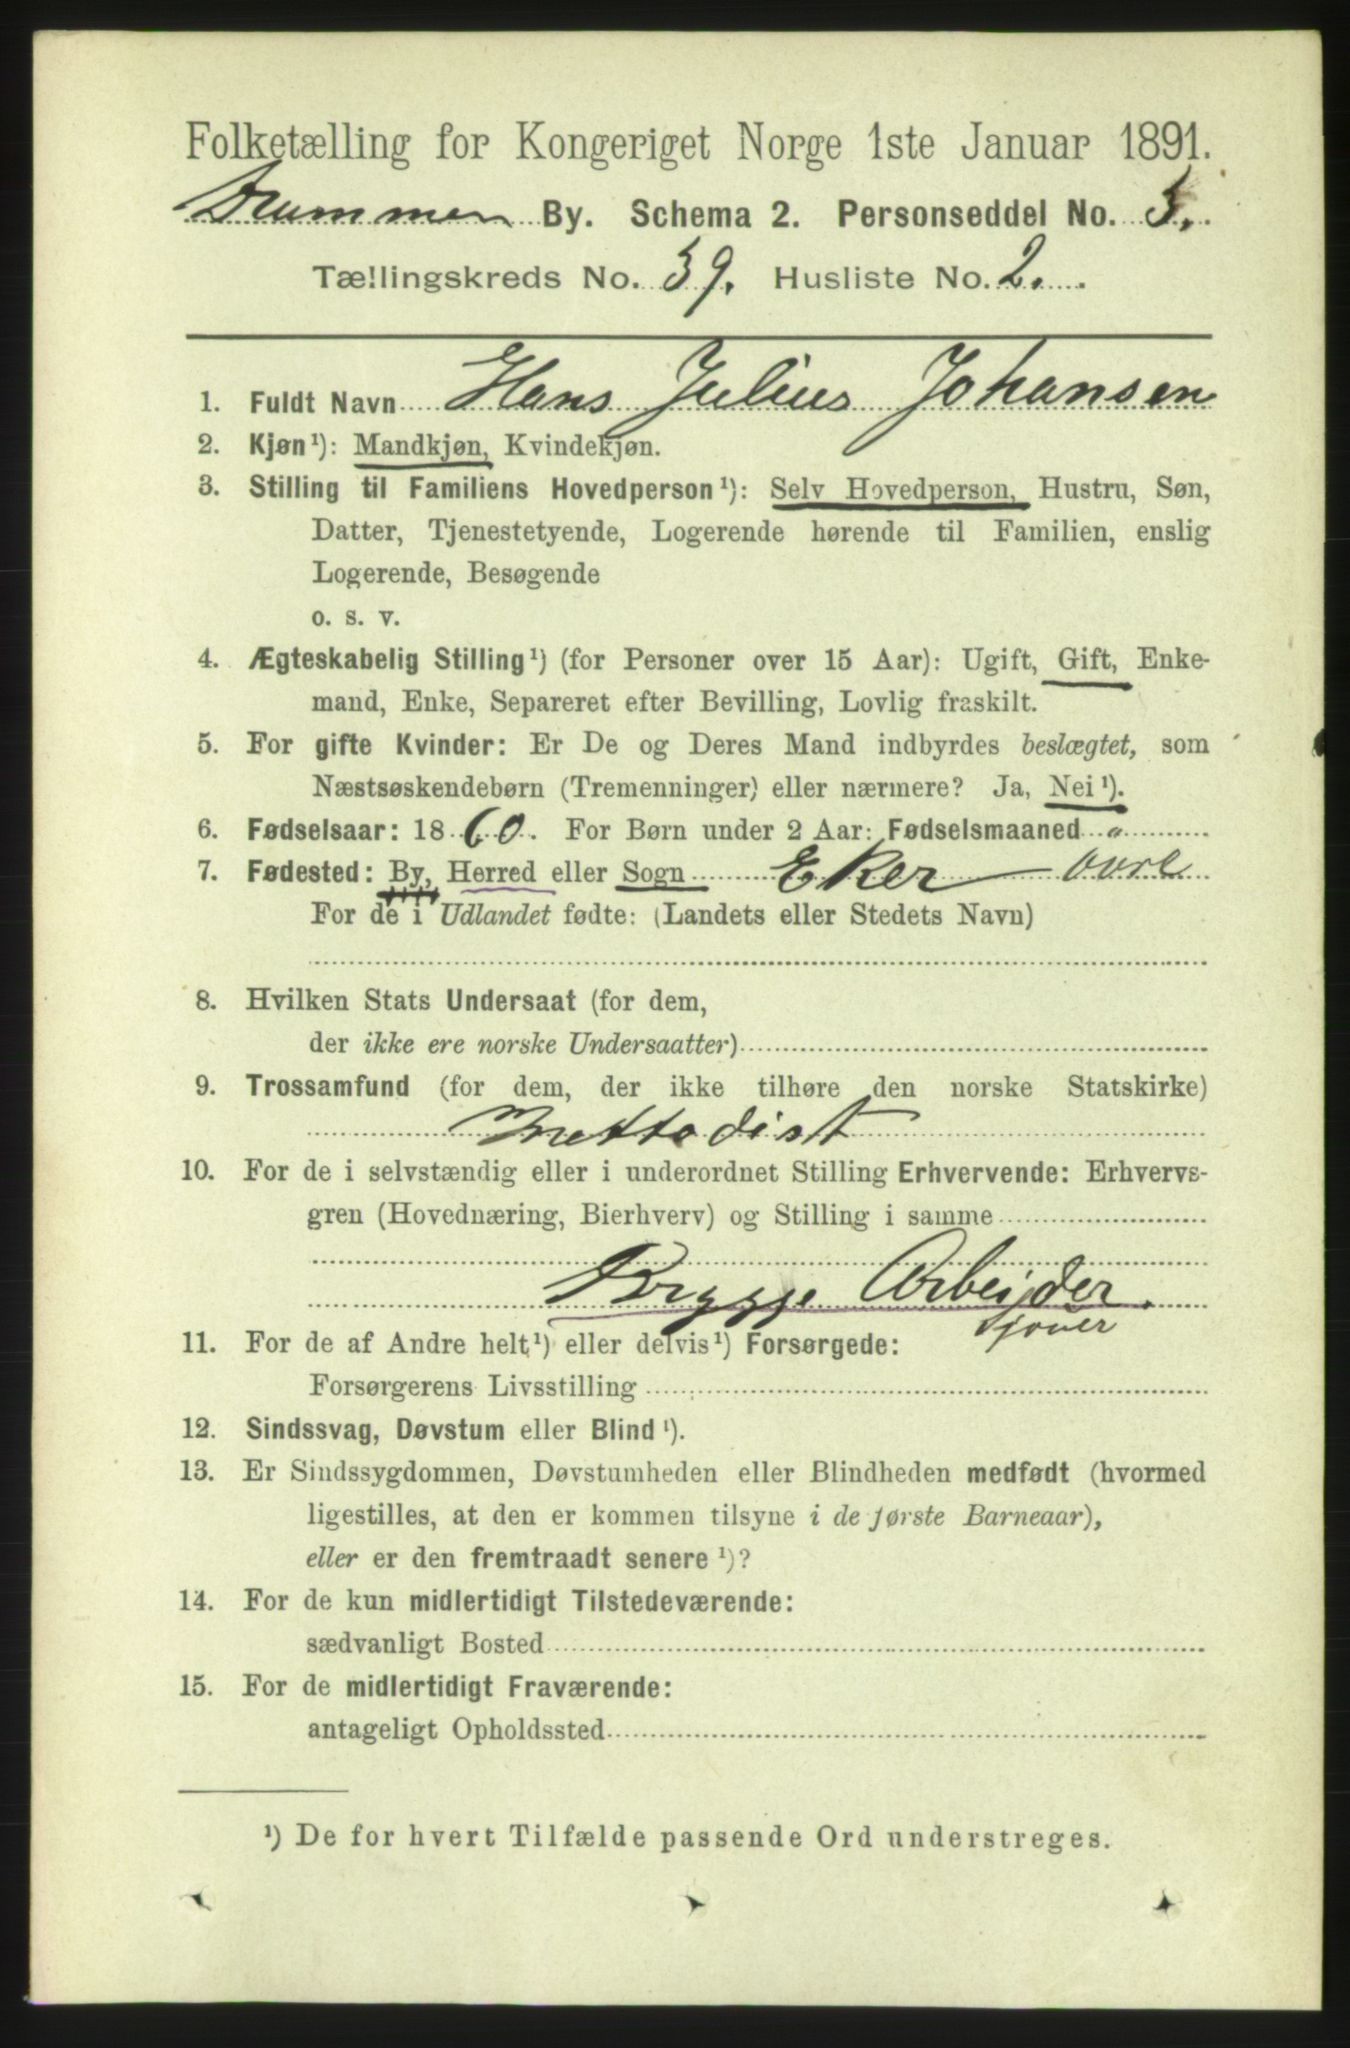 Folketælling for Kongeriget Norge 1ste Januar 1891.
Drammen By. Schema 2. Personseddel No. 5.
Tællingskreds No. 39. Husliste No. 2.
1. Fuldt Navn Hans Julius Johansen
2. Kjøn¹): Mandkjøn, Kvindekjøn.
3. Stilling til Familiens Hovedperson¹): Selv Hovedperson, Hustru, Søn,
Datter, Tjenestetyende, Logerende hørende til Familien, enslig
Logerende, Besøgende
o. s. v.
4. Ægteskabelig Stilling¹) (for Personer over 15 Aar): Ugift, Gift, Enke-
mand, Enke, Separeret efter Bevilling, Lovlig fraskilt.
5. For gifte Kvinder: Er De og Deres Mand indbyrdes beslægtet, som
Næstsøskendebørn (Tremenninger) eller nærmere? Ja, Nei¹).
6. Fødselsaar: 1860. For Børn under 2 Aar: Fødselsmaaned "
7. Fødested: By, Herred eller Sogn Eker - övre
For de i Udlandet fødte: (Landets eller Stedets Navn)
8. Hvilken Stats Undersaat (for dem,
der ikke ere norske Undersaatter)
9. Trossamfund (for dem, der ikke tilhøre den norske Statskirke)
Mettodist
10. For de i selvstændig eller i underordnet Stilling Erhvervende: Erhvervs-
gren (Hovednæring, Bierhverv) og Stilling i samme
Brygge Arbeijder.
sjouer
11. For de af Andre helt¹) eller delvis¹) Forsørgede:
Forsørgerens Livsstilling
12. Sindssvag, Døvstum eller Blind¹).
13. Er Sindssygdommen, Døvstumheden eller Blindheden medfødt (hvormed
ligestilles, at den er kommen tilsyne i de første Barneaar),
eller er den fremtraadt senere¹)?
14. For de kun midlertidigt Tilstedeværende:
sædvanligt Bosted
15. For de midlertidigt Fraværende:
antageligt Opholdssted
¹) De for hvert Tilfælde passende Ord understreges.